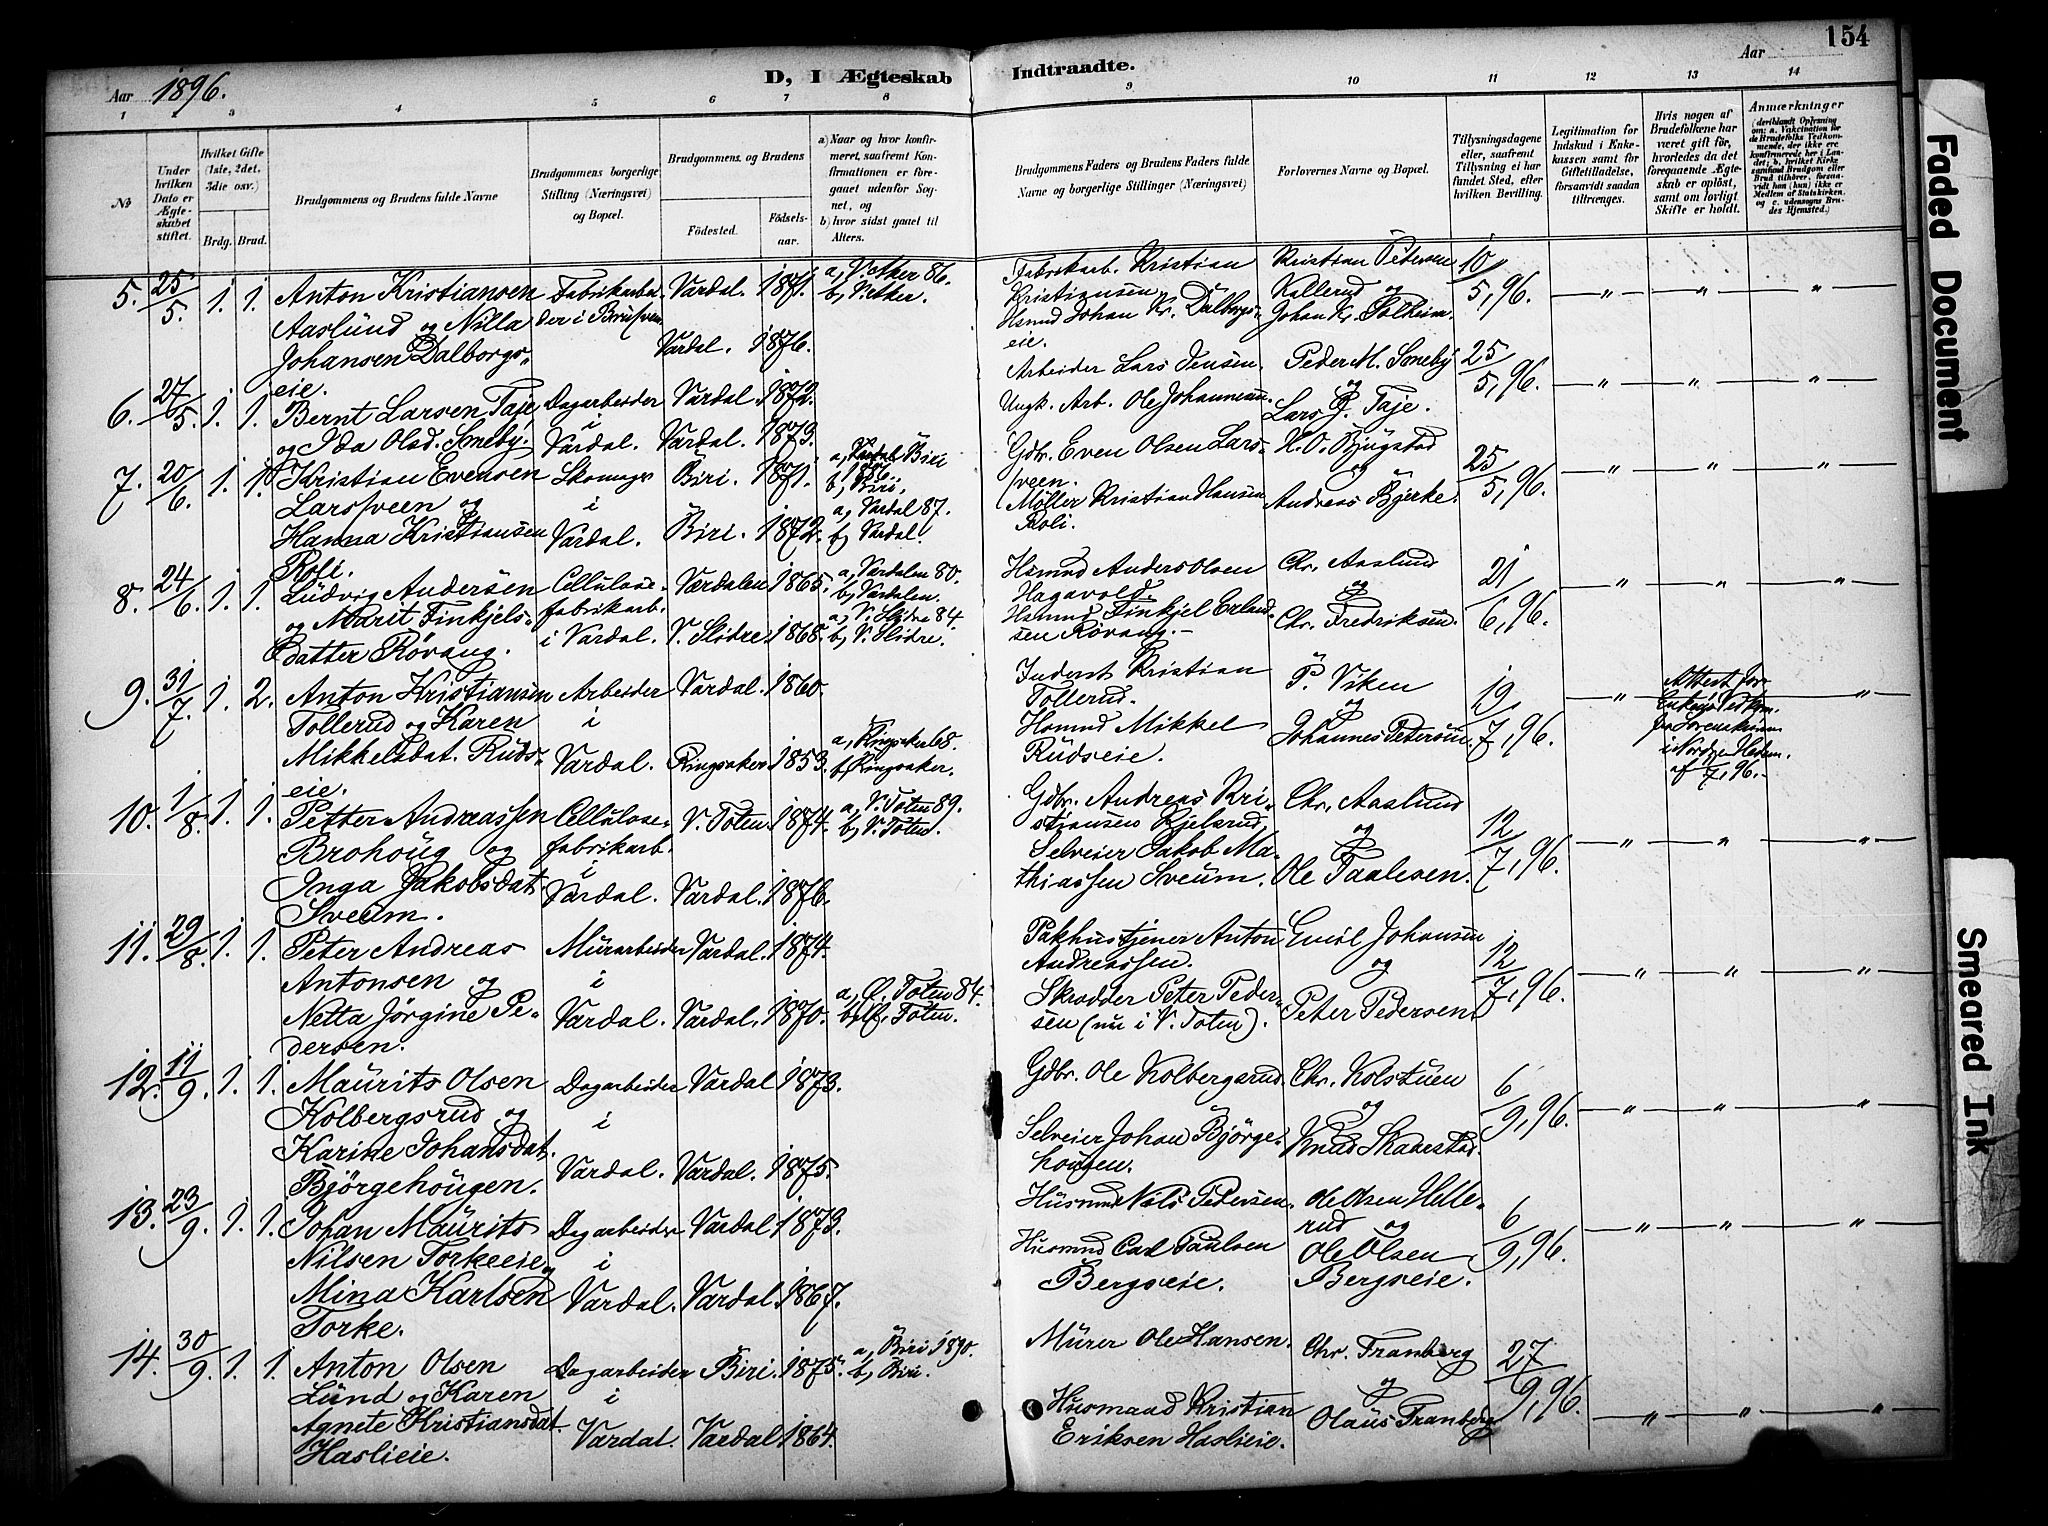 154
Aar 1896.
D, I Ægteskab Indtraadte.
Aar
1 2 3 4 5 6 7 8 9 10 11 12 13 14
No
Under hvilken Dato er Ægteskabet stiftet.
Hvilket Gifte (1ste, 2det, 3die osv.)
Brdg. Brud.
Brudgommens og Brudens fulde Navne
Brudgommens borgerlige Stilling (Næringsvei) og Bopæl.
Brudgommens og Brudens
Födested.
Födselsaar.
a) Naar og hvor konfirmeret, saafremt Konfirmationen er foregaaet udenfor Sognet, og
b) hvor sidst gaaet til Alters.
Brudgommens Faders og Brudens Faders fulde Navne og borgerlige Stillinger (Næringsvei)
Forlovernes Navne og Bopæl.
Tillysningsdagene eller, saafremt Tillysning ei har fundet Sted, efter hvilken Bevilling.
Legitimation for Indskud i Enkekassen samt for Giftetilladelse, forsaavidt saadan tiltrænges.
Hvis nogen af Brudefolkene har været gift för, hvorledes da det foregaaende Ægteskab er oplöst, samt om lovligt Skifte er holdt.
Anmærkninger (deriblandt Oplysning om: a. Vakcination for de Brudefolks Vedkommende, der ikke ere konfirmerede her i Landet; b. hvilket Kirkesamfund Brudgom eller Brud tilhörer, forsaavidt han (hun) ikke er Medlem af Statskirken. og c. udensogns Brudes Hjemsted.)
5. 25/5. 1. 1. Anton Kristiansen Aaslund og Nilla Johansen Dalborgseie.
Fabrikarbeider i
Vardal. 1871.
Vardal. 1876.
a, V. Aker 86.
b, V. Aker.
Fabrikarb. Kristian Kristiansen
Hsmd Johan Kr. Dalborgseie.
Kristian Petersen Kallerud og Johan Kr. Solheim.
10/5, 96. " " "
6. 27/5. 1. 1. Bernt Larsen Taje og Ida Olsd. Smeby.
Dagarbeider i Vardal.
Vardal. 1872.
Vardal. 1873.
Arbeider Lars Jensen.
Ungk. Arb. Ole Johannesen
Peder M. Smeby og Lars J. Taje.
25/5, 96. " " "
7. 20/6. 1. 1. Kristian Evensen Larssveen og Hanna Kristiansen Roli.
Skomager i Vardal.
Biri. 1871.
Biri. 1872.
Biri
b, Biri.
a, Vardal 87.
b, Vardal.
Gdbr. Even Olsen Larssveen.
Møller Kristian Hansen Roli.
H. O. Bjugstad og Andreas Bjerke.
25/5, 96. " " "
8. 24/6. 1. 1. Ludvig Andersen og Marit Finkjelsdatter Rövang.
Cellulosefabrikarb. i Vardal.
Værdalen 1865.
V. Slidre. 1868.
a, Værdalen 80.
b, Værdalen.
a, V. Slidre 84.
b, V. Slidre.
Hsmnd Anders Olsen Hagavold.
Hsmnd Finkjel Erlandsen Rövang.
Chr. Aaslund og Chr. Fredriksen.
21/6, 96. " " "
9. 31/7. 1. 2. Anton Kristiansen Tollerud og Karen Mikkelsdat. Rudseie.
Arbeider i Vardal.
Vardal. 1860.
Ringsaker 1853.
a, Ringsaker 68.
b, Ringsaker.
Inderst Kristian Tollerud.
Hsmnd Mikkel Rudseie.
P. Viken og Johannes Petersen.
19/7, 96. "
Attest for
fra Sorenskriveren i Nordre Hedem. af /7, 96.
"
10. 1/8. 1. 1. Petter Andreassen Brohoug og Inga Jakobsdat. Sveum.
Cellulosefabrikarb. i Vardal.
V. Toten. 1874.
Vardal. 1876.
a, V. Toten 89.
b, V. Toten.
Gdbr. Andreas Kristiansen Kjelsrud.
Selveier Jakob Mathiassen Sveum.
Chr. Aaslund og Ole Paulesen.
12/7, 96. " " "
11. 29/8. 1. 1. Peter Andreas Antonsen og Netta Jörgine Pedersen.
Murarbeider i Vardal.
Vardal. 1874.
Vardal. 1870.
a, Ö. Toten 84.
b, Toten.
Pakhustjener Anton Andreassen.
Skrædder Peter Pedersen (nu i V. Toten).
Emil Johansen og Peter Pedersen.
12/7, 96. " " "
12. 11/9. 1. 1. Maurits Olsen Kolbergsrud og Karine Johansdat. Bjørgehougen.
Dagarbeider i Vardal.
Vardal 1873.
Vardal. 1875.
Gdbr. Ole Kolbergsrud.
Selveier Johan Bjørgehougen.
Chr. Kolstuen og Knud Skadestad.
6/9, 96. " " "
13. 23/9. 1. 1. Johan Maurits Nilsen Torkeeie og Mina Karlsen Torke.
Dagarbeider i Vardal.
Vardal 1873.
Vardal. 1867.
Husmnd Nils Pedersen.
Husmnd Carl Paulsen Bergseie.
Ole Olsen Hillerud og Ole Olsen Bergseie.
6/9, 96. " " "
14. 30/9. 1. 1. Anton Olsen Lund og Karen Agnete Kristiansdat. Haslieie.
Dagarbeider i Vardal.
Biri. 1875.
Vardal 1864.
a, Biri 1890.
b, Biri.
Murer Ole Hansen.
Husmand Kristian Eriksen Haslieie.
Chr. Franberg og Olaus Franberg
27/9, 96. " " "
Faded Document
Smeared Ink